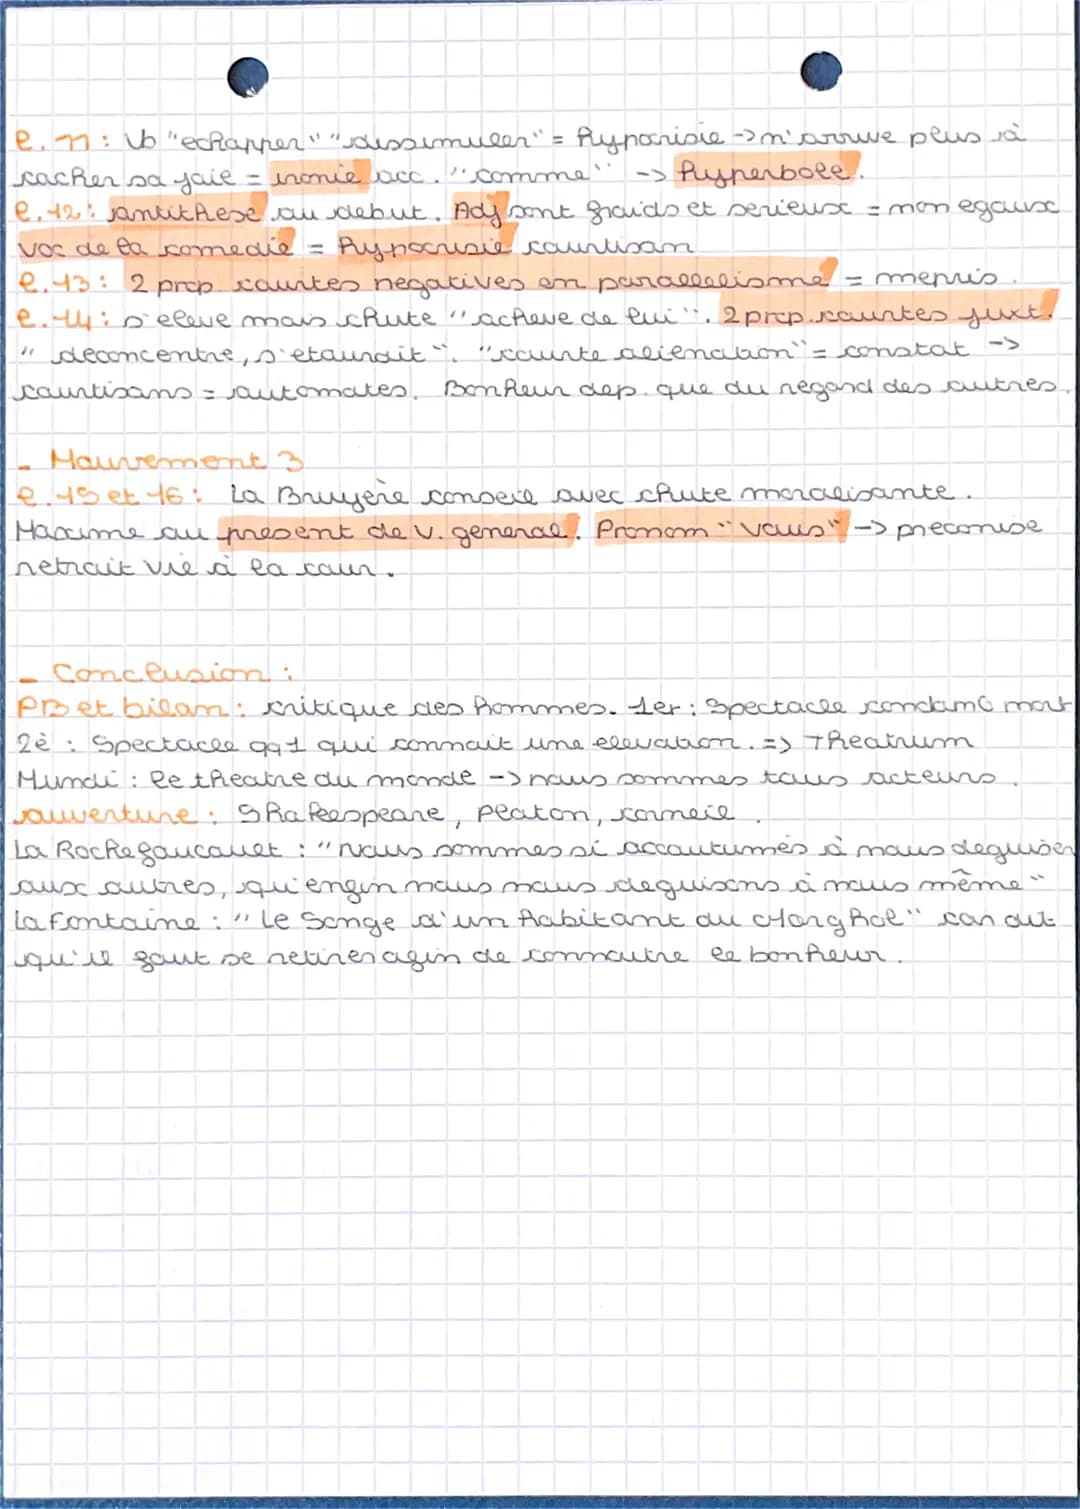 l.11 : Vb "echapper" "dissimuler" = hypocrisie -> n'arrive plus à
cacher sa joie = ironie acc. "comme" -> hyperbole.
l.12 : antithèse au debut. Adj sont froids et serieux = non egaux
voc de la comedie = hypocrisie courtisan
l.13 : 2 prop courtes negatives en parallelisme = mepris.
l.14 : s'eleve mais chute "acheve de lui". 2 prop. courtes juxt.
"deconcentre, s'etourdit". "courte alienation" = constat ->
courtisans = automates. Bonheur dep. que du regard des autres.
- Mouvement 3
l.15 et 16 : La Bruyère conseil avec chute moralisante.
Maxime au present de v. general. Pronom "vous" -> preconise
retrait vie à la cour.
- Conclusion :
PB et bilan : critique des hommes. 1er : Spectacle condam mort
2è : Spectacle qq1 qui connait une elevation. => Theatrum
Mundi : le theatre du monde -> nous sommes tous acteurs.
ouverture : Shakespeare, Platon, corneil.
La Rochefoucault : "Nous sommes si accoutumés à nous deguiser
aux autres, qu'enfin nous nous deguisons à nous même"
La Fontaine : "Le Songe d'un habitant du Monghol" car dit
qu'il faut se retirer afin de connaitre le bonheur.